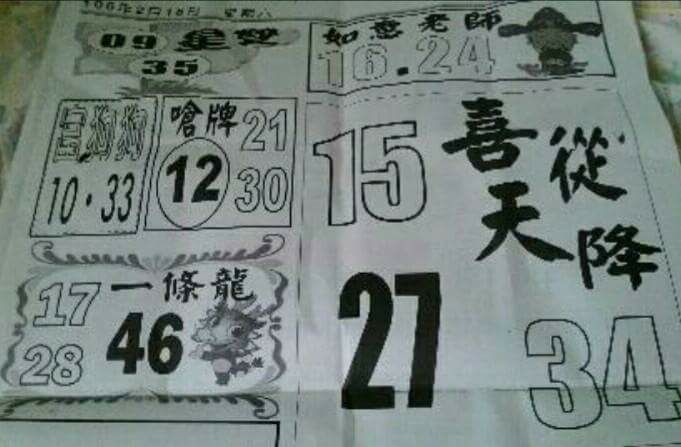 106年2月18日 星期六
09 星雙
35
如意老師
16.24
富狗狗
10.33
嗆牌
12
21
30
15
喜從天降
27
34
一條龍
17
28
46